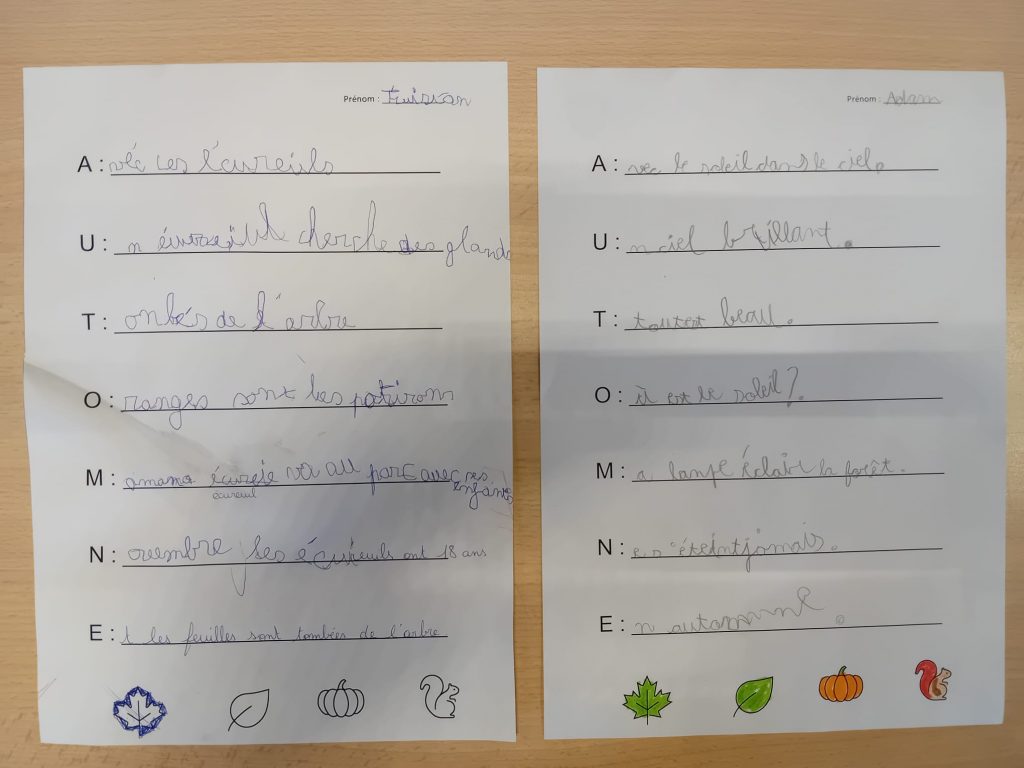 Prénom :
A : véc ces l'écureuils
U : n écureuil cherche des glands
T : onbés de l'arbre
O : ranges sont les potirons
M : amama va au parc avec ses enfants
écureuil
N : ovembre les écureuils ont 18 ans
E : t les feuilles sont tombées de l'arbre
Prénom : Adam
A : vec le soleil dans le ciel.
U : n ciel brillant.
T : beau.
O : ù est le soleil?
M : a lampe éclaire la forêt.
N : e s'éteint jamais.
E : n automne.